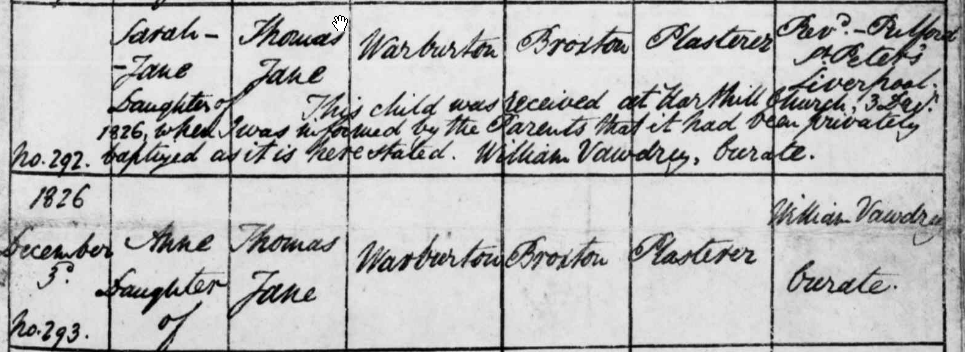 Sarah- Thomas Warburton Broxton Plasterer Revd.- Pulford
-Jane Jane St. Peter's
Liverpool.
Daughter of This child was received at Harthill Church, 3 Decr.
1826, when I was informed by the Parents that it had been privately
No. 292. baptized as it is here stated. William Vawdrey, Curate.
1826
William Vawdrey
December Anne Thomas Warburton Broxton Plasterer
3d. Daughter Jane Curate.
of
No. 293.